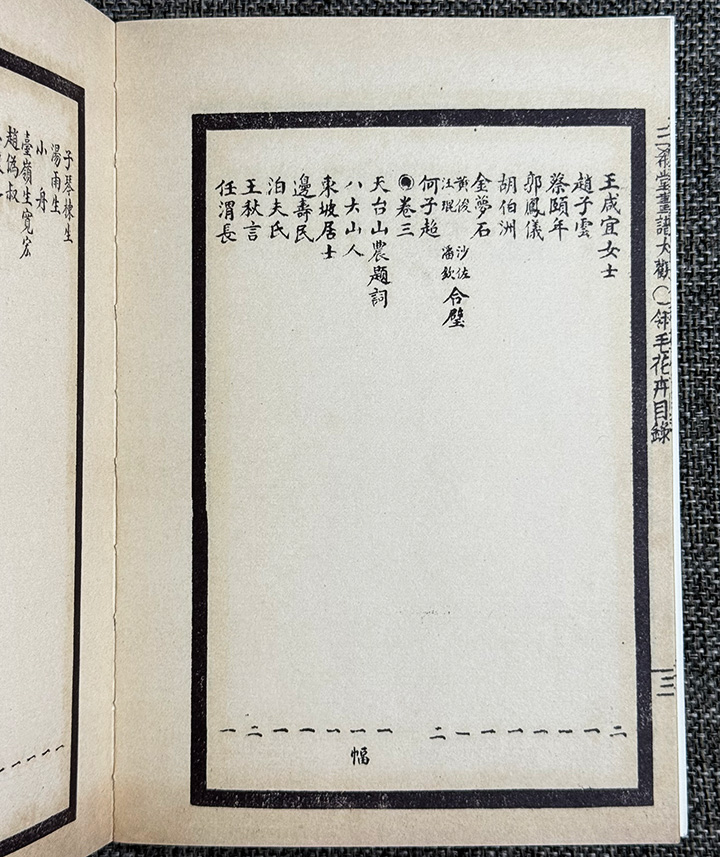 三希堂畫譜大觀〇翎毛花卉目錄 三
王咸宜女士 二
趙子雲 一
蔡頤年 一
郭鳳儀 一
胡伯洲 一
金夢石 一
黃俊 沙佐
汪琨 潘欽 合璧 一
何子超 二
◉卷三
天台山農題詞 一
八大山人 一幅
東坡居士 一
邊壽民 一
泊夫氏 一
王秋言 二
任渭長 一
子琴棟生 一
湯雨生 一
小舟 一
臺嶺生寬宏 一
趙偽叔 一